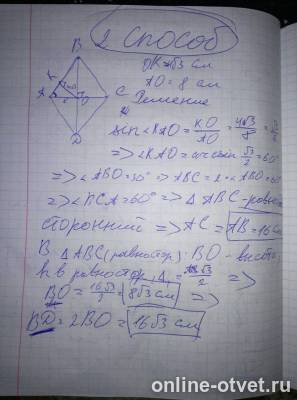 2 способ
B
K
A
O
C
D
OK = 4√3 см
AO = 8 см
Решение
sin ∠KAO = KO/AO = 4√3/8 =
=> ∠KAO = √3/2 = 60°
=> ∠ABO = 30° => ∠ABC = 2·∠ABO = 60°
=> ∠BCA = 60° => △ABC - равно
сторонний => AC = AB = 16 см
В △ABC (равностор): BO - высота,
h в равностор. △ = √3/2 =>
BO = 16√3/2 = 8√3 см =>
BD = 2BO = 16√3 см
online-otvet.ru